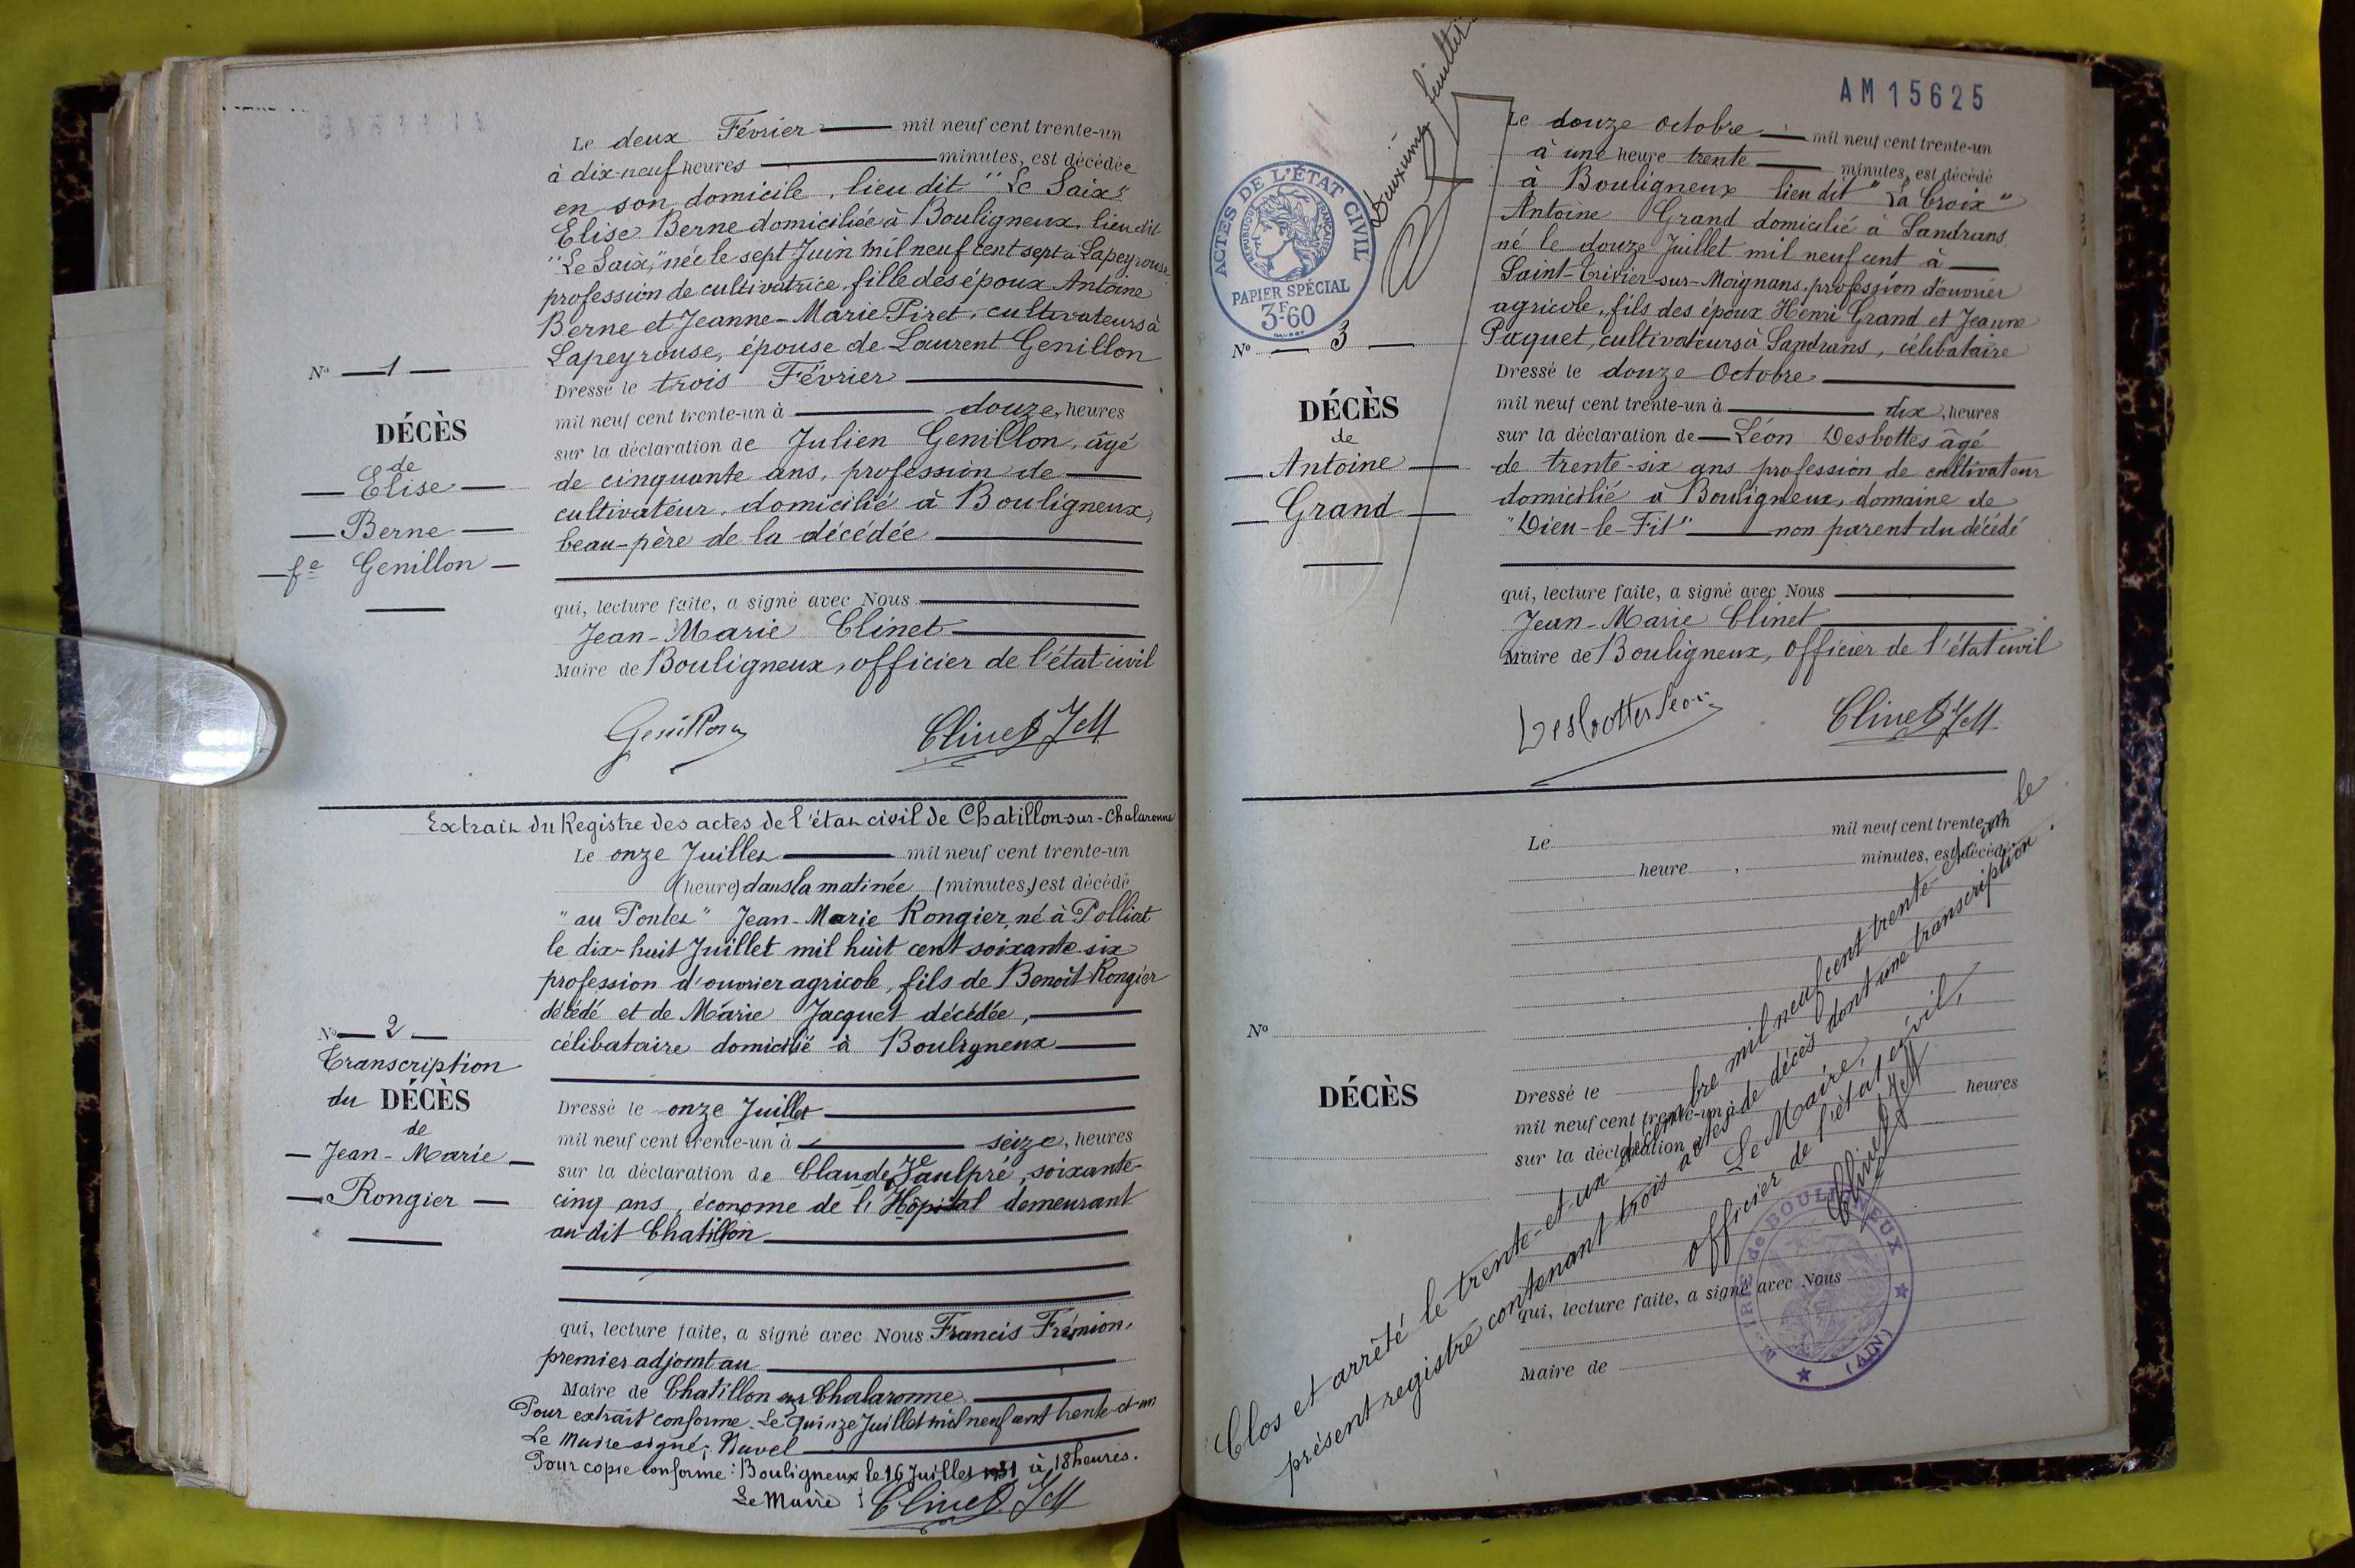 Le deux Février mil neuf cent trente-un
à dix-neuf heures minutes, est décédée
en son domicile, lieu dit "Le Saix"
Elise Berne domiciliée à Bouligneux, lieu dit
"Le Saix", née le sept Juin mil neuf cent sept à Lapeyrouse
profession de cultivatrice, fille des époux Antoine
Berne et Jeanne-Marie Piret, cultivateurs à
Lapeyrouse, épouse de Laurent Genillon
Dressé le trois Février
mil neuf cent trente-un à douze, heures
sur la déclaration de Julien Genillon, âgé
de cinquante ans, profession de
cultivateur, domicilié à Bouligneux,
beau-père de la décédée
qui, lecture faite, a signé avec Nous
Jean-Marie Clinet
Maire de Bouligneux, officier de l'état civil
Genillon
Clinet JM
No 1
DÉCÈS
de
Elise
Berne
fe Genillon
Extrait du Registre des actes de l'état civil de Chatillon-sur-Chalaronne
Le onze Juillet mil neuf cent trente-un
(heure) dans la matinée (minutes,) est décédé
"au Pontet" Jean-Marie Rongier, né à Polliat
le dix-huit Juillet mil huit cent soixante-six
profession d'ouvrier agricole, fils de Benoît Rongier
décédé et de Marie Jacquet décédée,
célibataire domicilié à Bouligneux
Dressé le onze Juillet
mil neuf cent trente-un à seize, heures
sur la déclaration de Claude Jh Vaulpré, soixante-
cinq ans, économe de l'Hôpital demeurant
au dit Chatillon
qui, lecture faite, a signé avec Nous Francis Frémion,
premier adjoint au
Maire de Chatillon sur Chalaronne
Pour extrait conforme. Le quinze Juillet mil neuf cent trente-et-un
Le Maire signé: Navel
Pour copie conforme: Bouligneux le 16 Juillet 1931 à 18 heures.
Le Maire : Clinet JM
No 2
Transcription
du DÉCÈS
de
Jean-Marie
Rongier
AM15625
Deuxième feuillet
ACTES DE L'ÉTAT CIVIL
RÉPUBLIQUE FRANÇAISE
PAPIER SPÉCIAL
3F60
Le douze Octobre mil neuf cent trente-un
à une heure trente minutes, est décédé
à Bouligneux lieu dit "La Croix"
Antoine Grand domicilié à Sandrans
né le douze Juillet mil neuf cent à
Saint-Trivier-sur-Moignans, profession d'ouvrier
agricole, fils des époux Henri Grand et Jeanne
Paquet, cultivateurs à Sandrans, célibataire
Dressé le douze Octobre
mil neuf cent trente-un à dix, heures
sur la déclaration de Léon Desbottes âgé
de trente-six ans profession de cultivateur
domicilié à Bouligneux, domaine de
"Dieu-le-Fit" non parent du décédé
qui, lecture faite, a signé avec Nous
Jean-Marie Clinet
Maire de Bouligneux, officier de l'état civil
Desbottes Léon
Clinet JM
No 3
DÉCÈS
de
Antoine
Grand
Le mil neuf cent trente-un
heure minutes, est décédé
Dressé le
mil neuf cent trente-un à heures
sur la déclaration de
qui, lecture faite, a signé avec Nous
Maire de
No
DÉCÈS
Clos et arrêté le trente-et-un décembre mil neuf cent trente-et-un le
présent registre contenant trois actes de décès dont une transcription.
Le Maire,
officier de l'état civil,
Clinet JM
MAIRIE de BOULIGNEUX
(AIN)